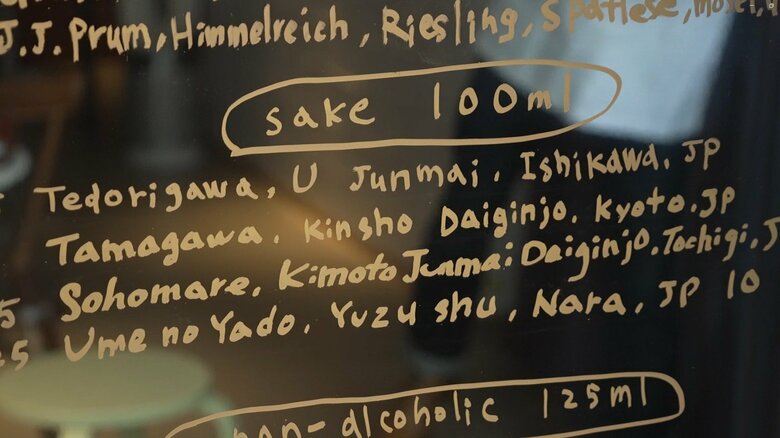 J.J. Prum, Himmelreich, Riesling, Spätlese, Mosel,
sake 100ml
Tedorigawa, U Junmai, Ishikawa, JP
Tamagawa, Kinsho Daiginjo, Kyoto, JP
5 Sohomare, Kimoto Junmai Daiginjo, Tochigi, J
5 Ume no Yado, Yuzu shu, Nara, JP 10
non-alcoholic 125ml